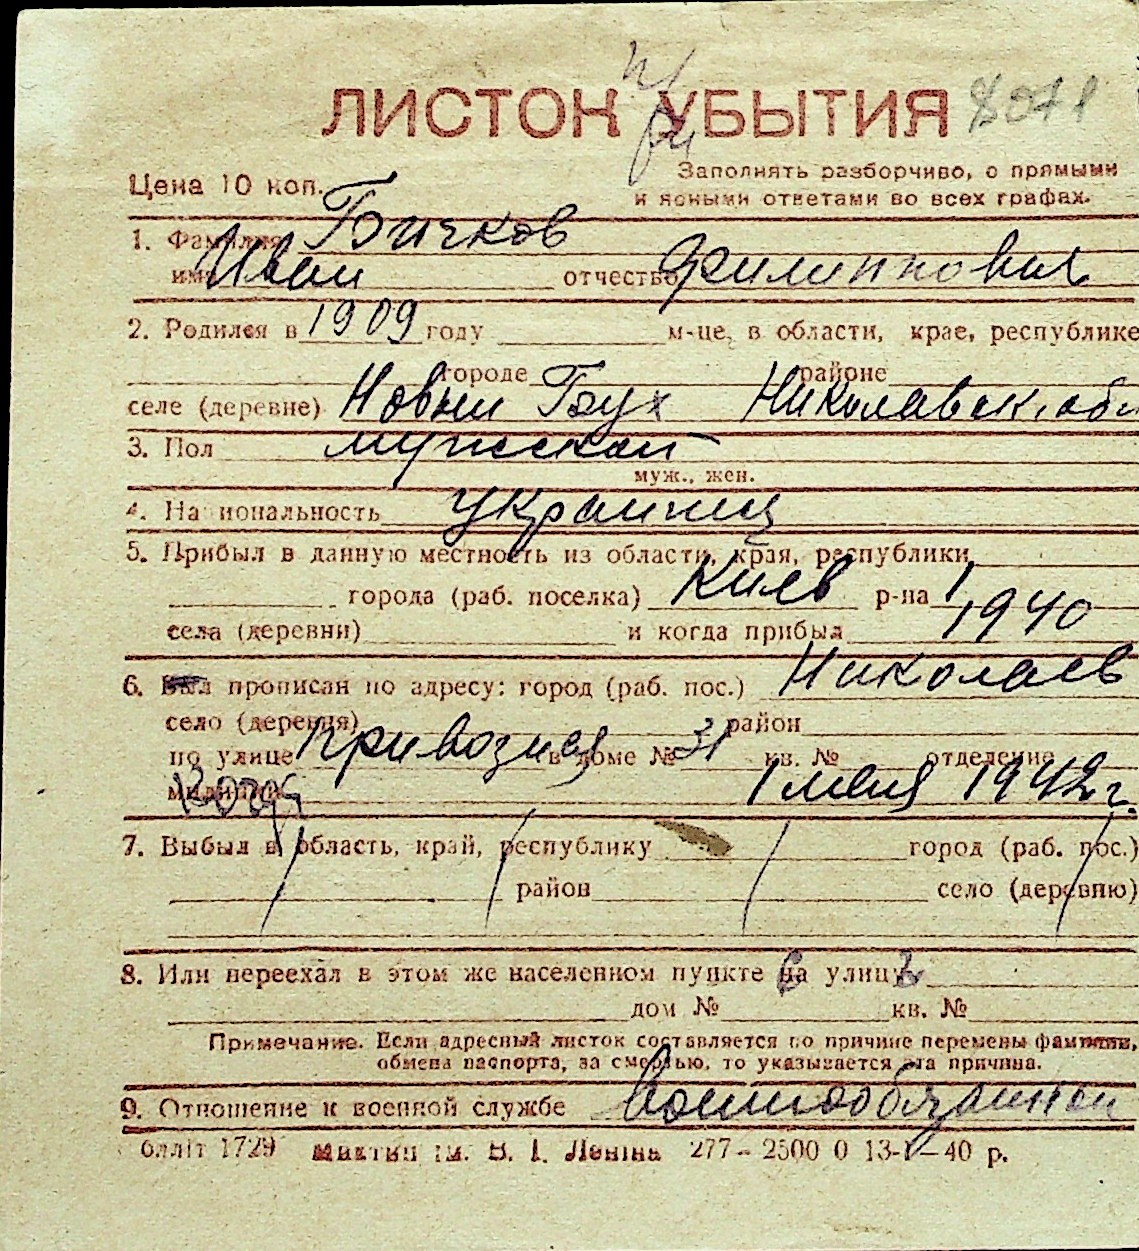 ЛИСТОК УБЫТИЯ 8071
Цена 10 коп.
Заполнять разборчиво, с прямыми
и ясными ответами во всех графах.
1. Фамилия Бичков
имя Иван отчество Филиппович
2. Родился в 1909 году м-це, в области, крае, республике
городе районе
селе (деревне) Новый Буг Николаевск. обл
3. Пол мужской
муж., жен.
4. Национальность украинец
5. Прибыл в данную местность из области, края, республики
города (раб. поселка) Киев р-на
села (деревни) и когда прибыл 1940
6. Был прописан по адресу: город (раб. пос.) Николаев
село (деревня) район
по улице Привозная в доме № 31 кв. № отделение
милиции 1 июня 1942 г.
7. Выбыл в область, край, республику город (раб. пос.)
район село (деревню)
8. Или переехал в этом же населенном пункте на улицу
дом № кв. №
Примечание. Если адресный листок составляется по причине перемены фамилии,
обмена паспорта, за смертью, то указывается эта причина.
9. Отношение к военной службе Военнообязанной
олліт 1729 ім. В. І. Леніна 277-2500 0 13-І-40 р.